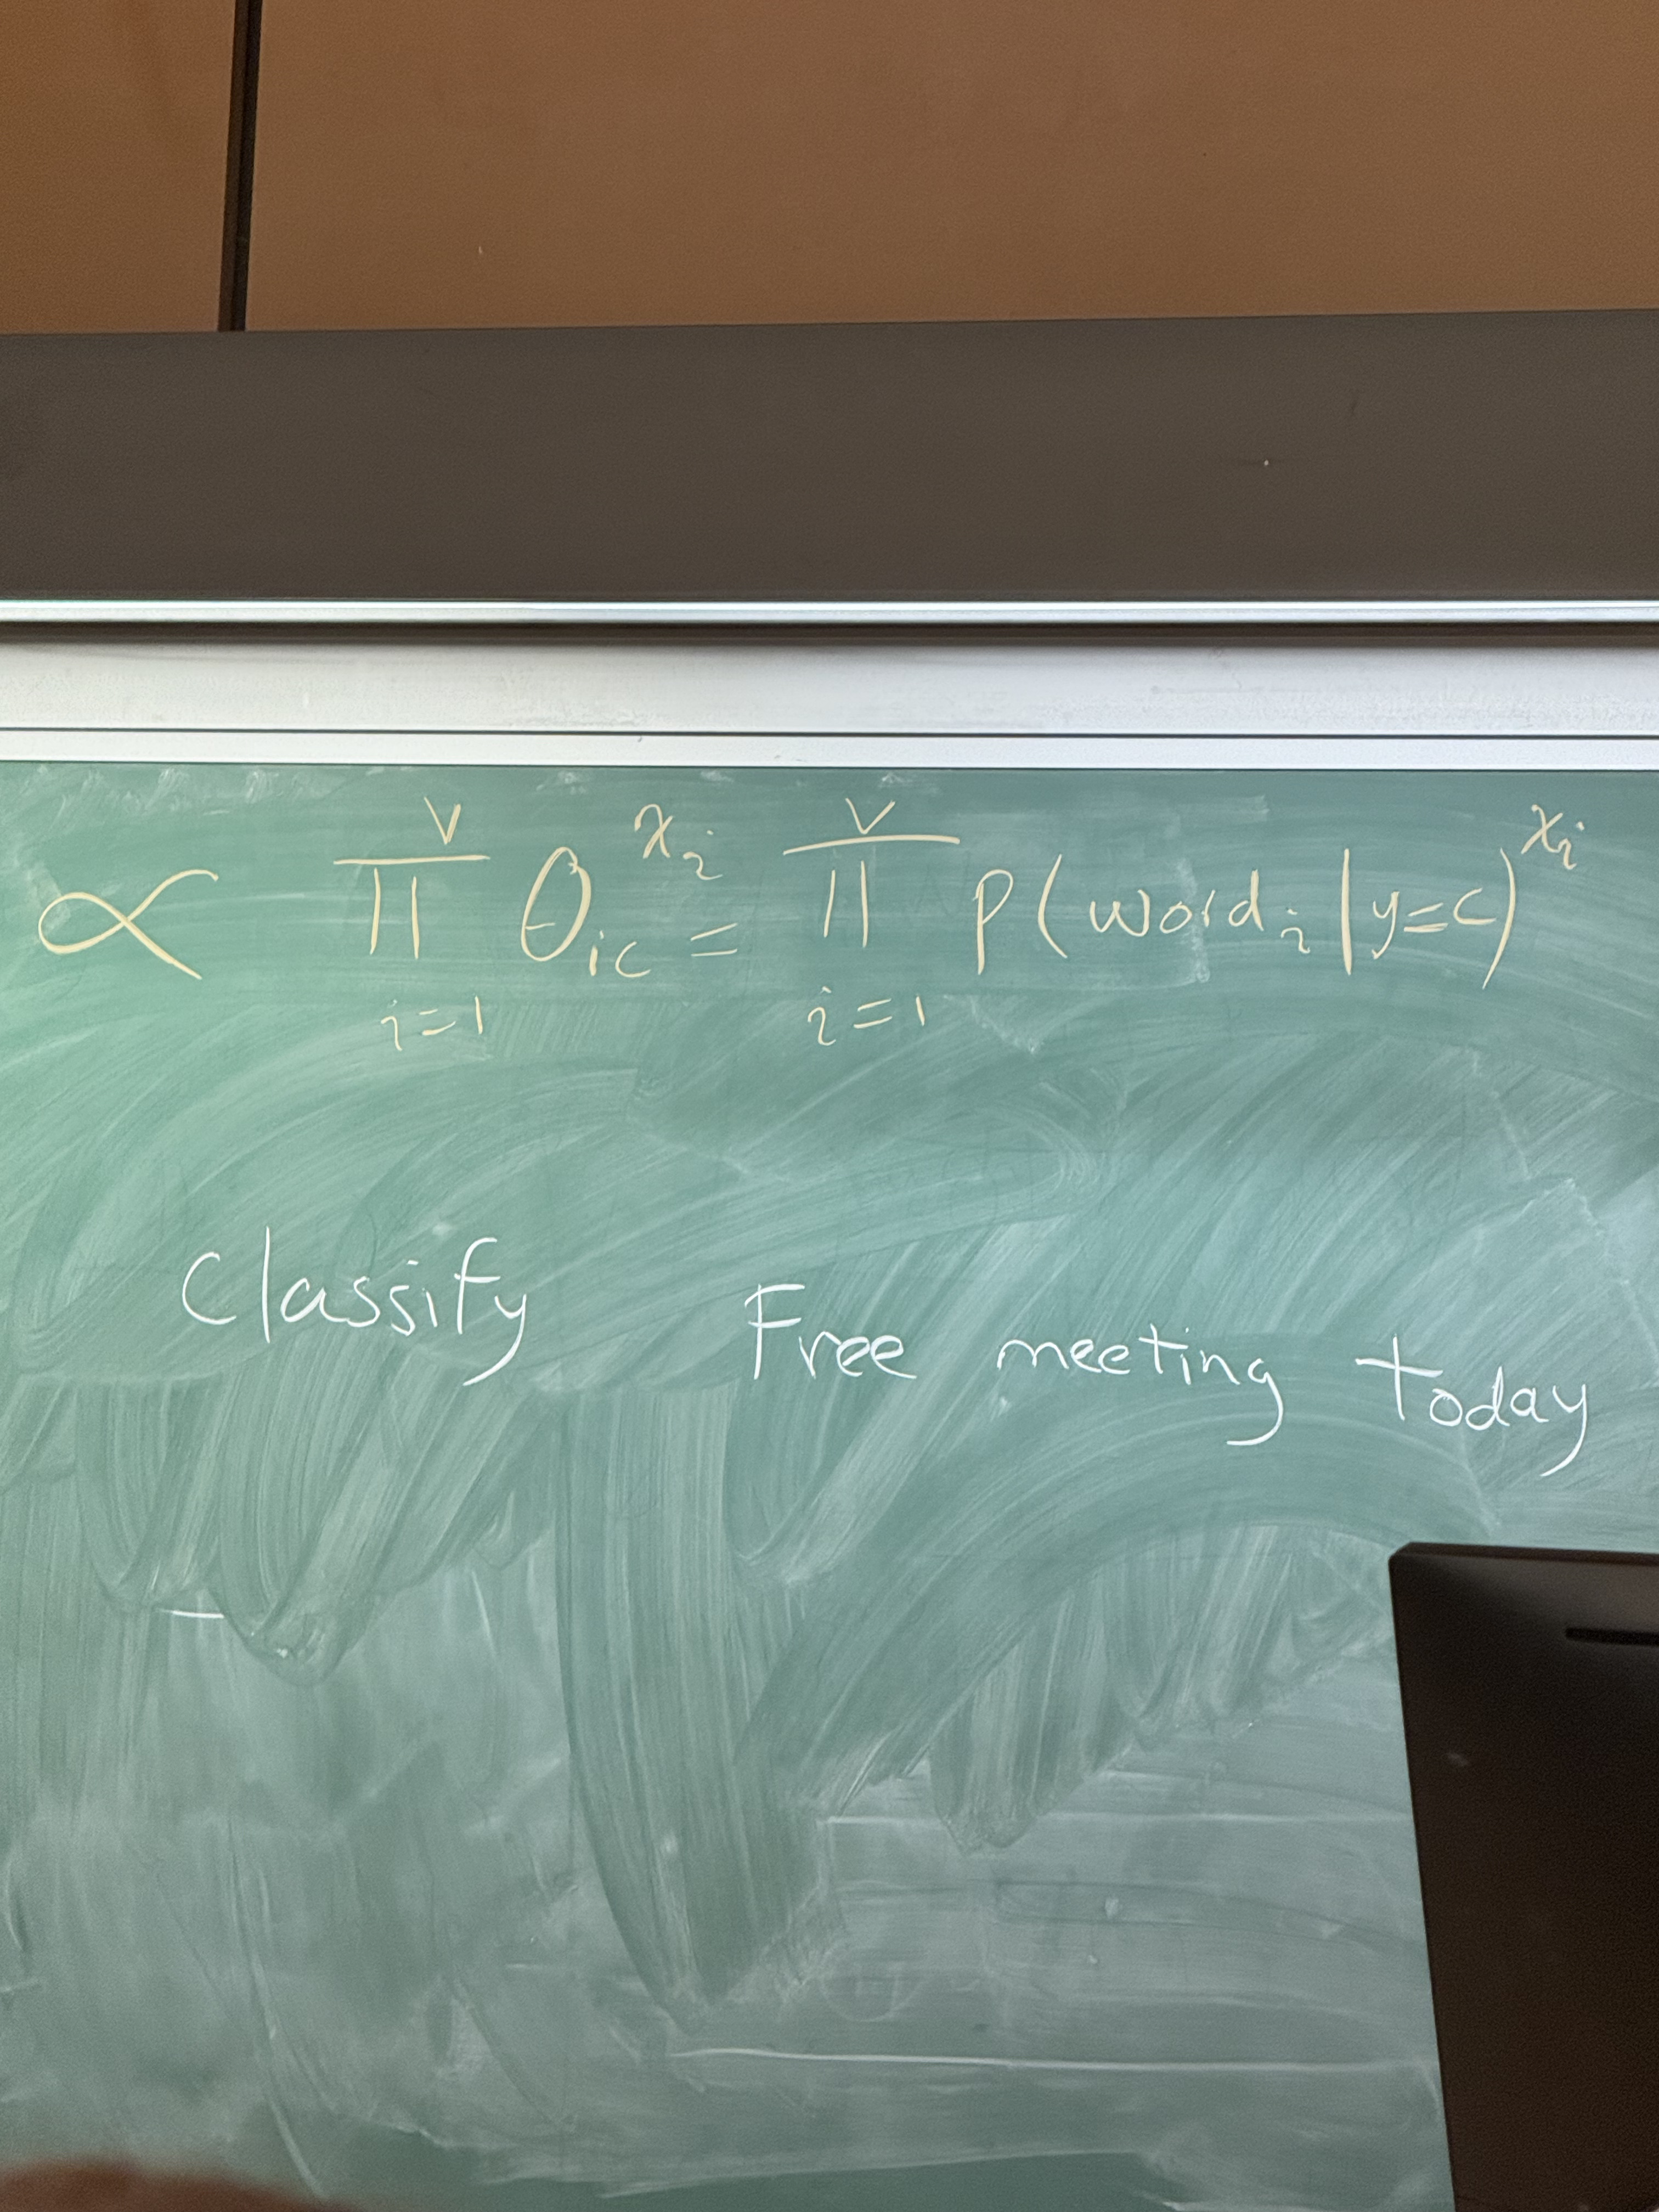 ∝ ∏_{i=1}^{V} θ_{ic}^{x_i} = ∏_{i=1}^{V} p(word_i | y=c)^{x_i}
Classify Free meeting today